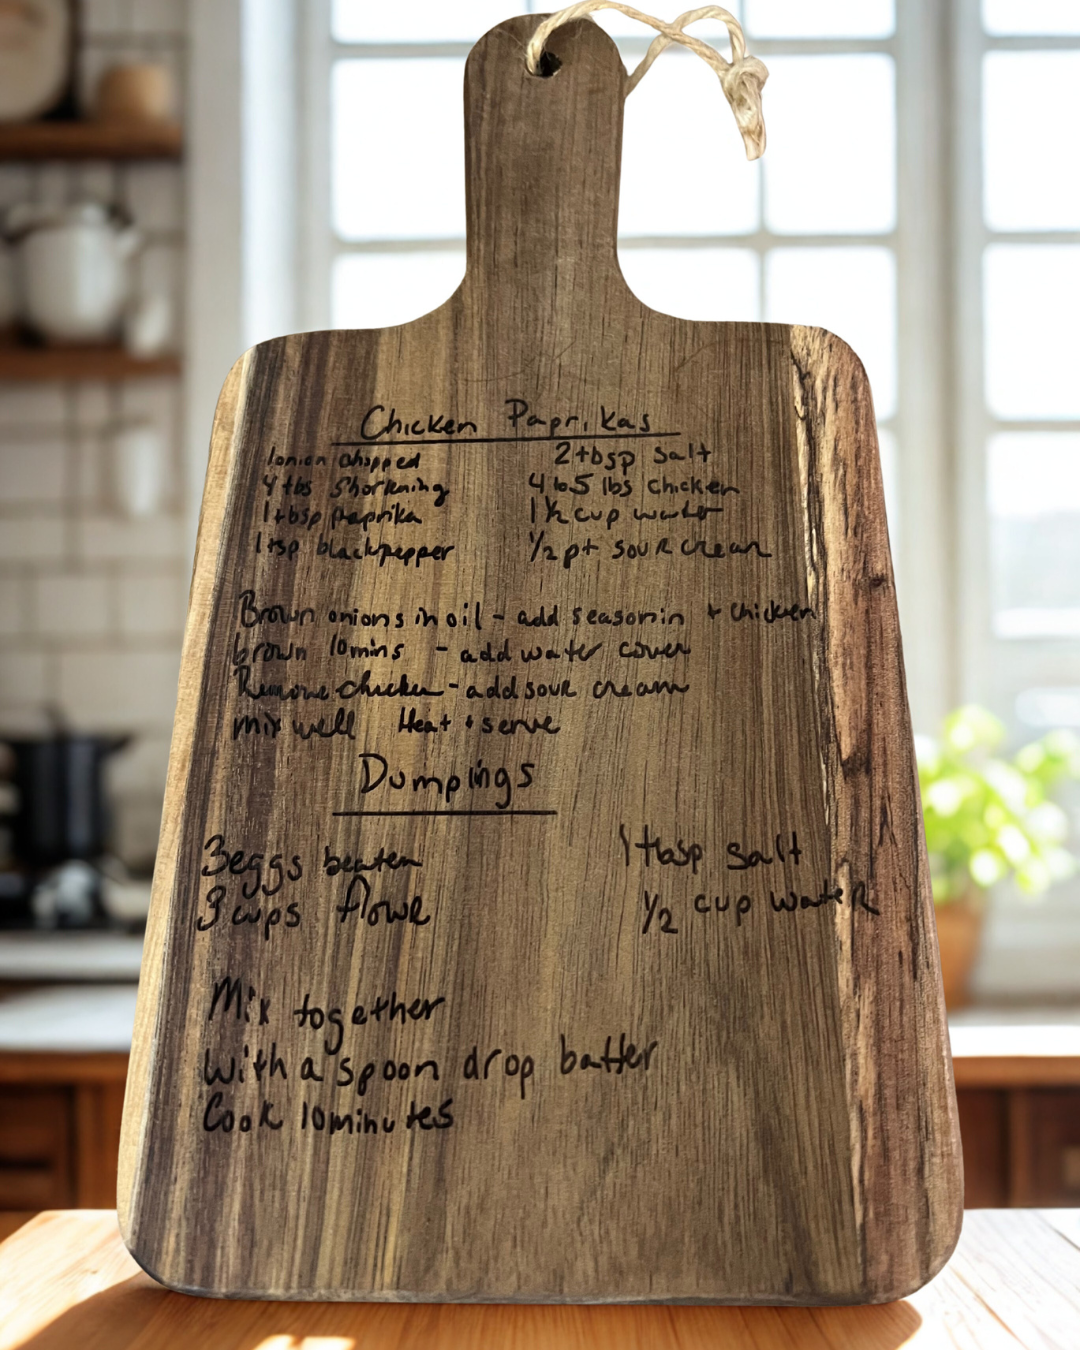 Chicken Paprikas
1onion chopped 2tbsp salt
4 tbs Shortening 4 to 5 lbs chicken
1tbsp paprika 1½ cup water
1tsp blackpepper ½ pt sour cream
Brown onions in oil - add seasonin + chicken
brown 10mins - add water cover
Remove chicken - add sour cream
mix well Heat + serve
Dumpings
3eggs beaten 1tbsp salt
3 cups flowr ½ cup water
Mix together
With a spoon drop batter
Cook 10minutes